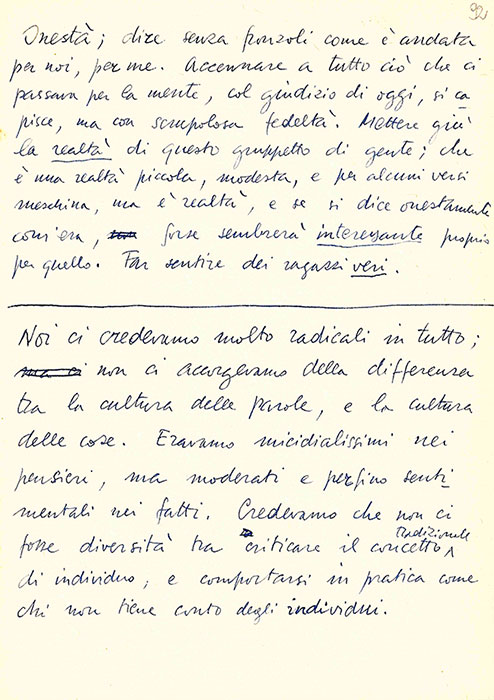 92
Onestà; dire senza fronzoli come è andata
per noi, per me. Accennare a tutto ciò che ci
passava per la mente, col giudizio di oggi, si ca
pisce, ma con scrupolosa fedeltà. Mettere giù
la realtà di questo gruppetto di gente; che
è una realtà piccola, modesta, e per alcuni versi
meschina, ma è realtà, e se si dice onestamente
com'era, forse sembrerà interessante proprio
per quello. Far sentire dei ragazzi veri.
Noi ci credevamo molto radicali in tutto;
ma ci non ci accorgevamo della differenza
tra la cultura delle parole, e la cultura
delle cose. Eravamo micidialissimi nei
pensieri, ma moderati e perfino senti
mentali nei fatti. Credevamo che non ci
tradizionale
fosse diversità tra criticare il concetto
di individuo, e comportarsi in pratica come
chi non tiene conto degli individui.